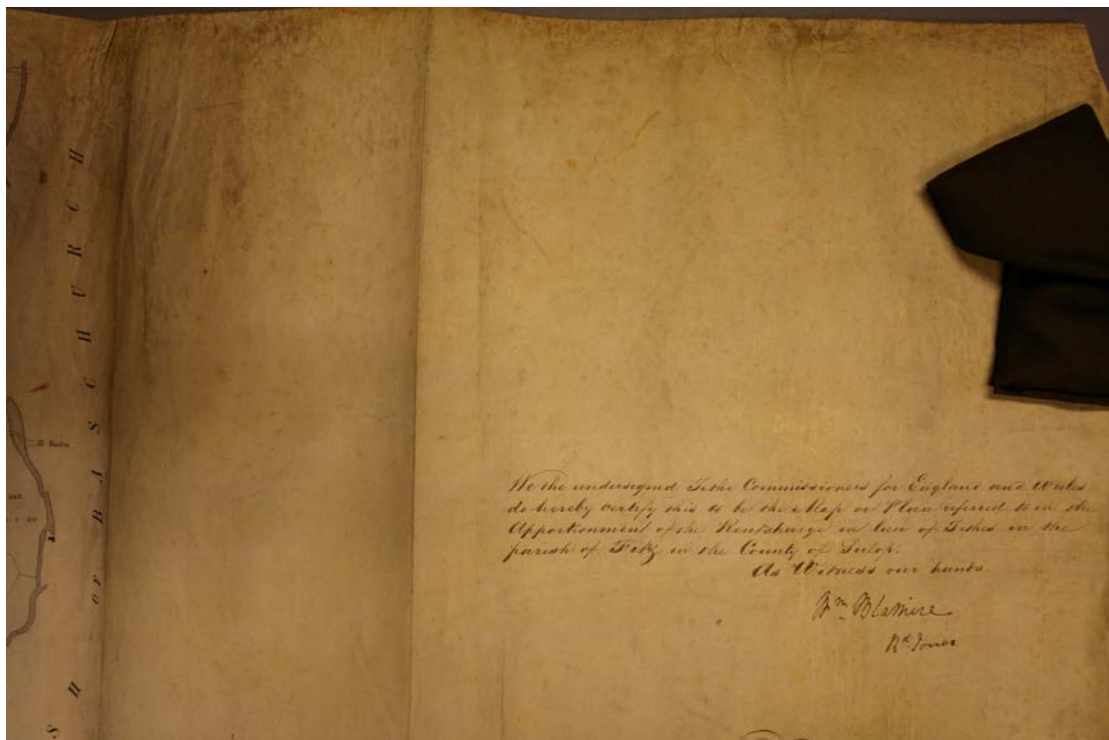 We the undersigned Tithe Commissioners for England and Wales
do hereby certify this to be the Map or Plan referred to in the
Apportionment of the Rentcharge in lieu of Tithes in the
parish of Fitz in the County of Salop.
As Witness our hands
Wm Blamire
Rd Jones
SH OF BASCHURCH